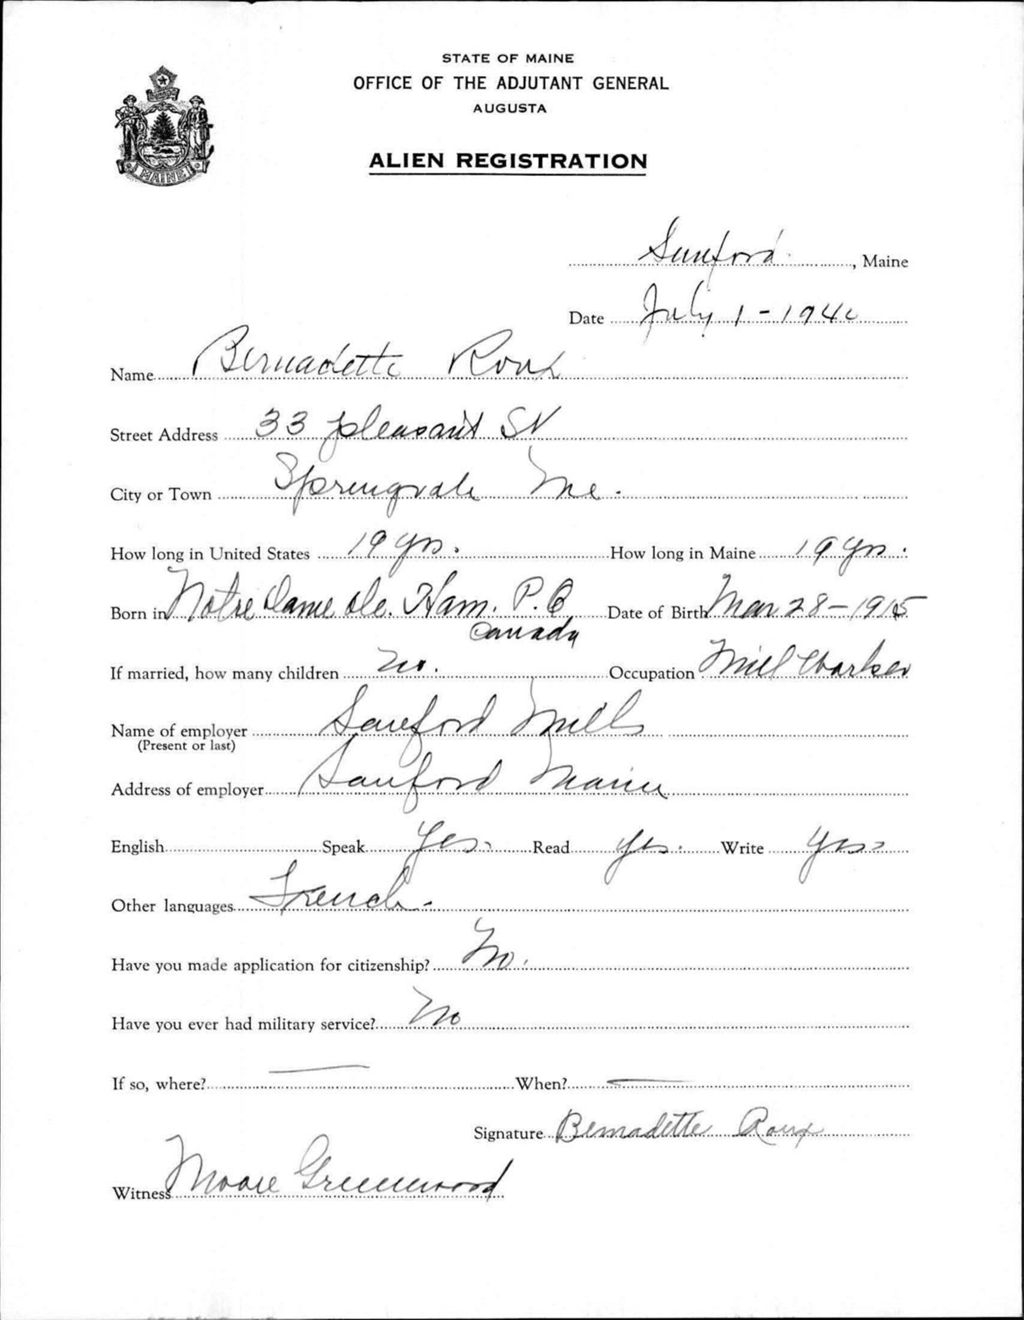 STATE OF MAINE
OFFICE OF THE ADJUTANT GENERAL
AUGUSTA
MAINE
ALIEN REGISTRATION
Sanford, Maine
Date July 1 - 1940
Name Bernadette Roux
Street Address 33 Pleasant St
City or Town Springvale Me.
How long in United States 19 yrs. How long in Maine 19 yrs.
Born in Notre Dame de. Ham. P.Q. Date of Birth Mar 28 - 1915
Canada
If married, how many children no. Occupation Mill Worker
Name of employer Sanford Mills
(Present or last)
Address of employer Sanford Maine
English Speak Yes. Read yes. Write yes
Other languages French.
Have you made application for citizenship? No.
Have you ever had military service? No
If so, where? — When? —
Signature Bernadette Roux
Witness Greenwood